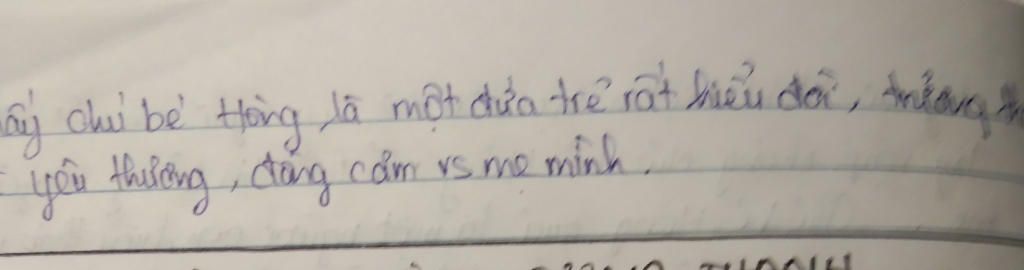 ấy chú bé Hồng là một đứa trẻ rất hiểu đời, trưởng
yêu thương, đồng cảm vs mẹ mình.